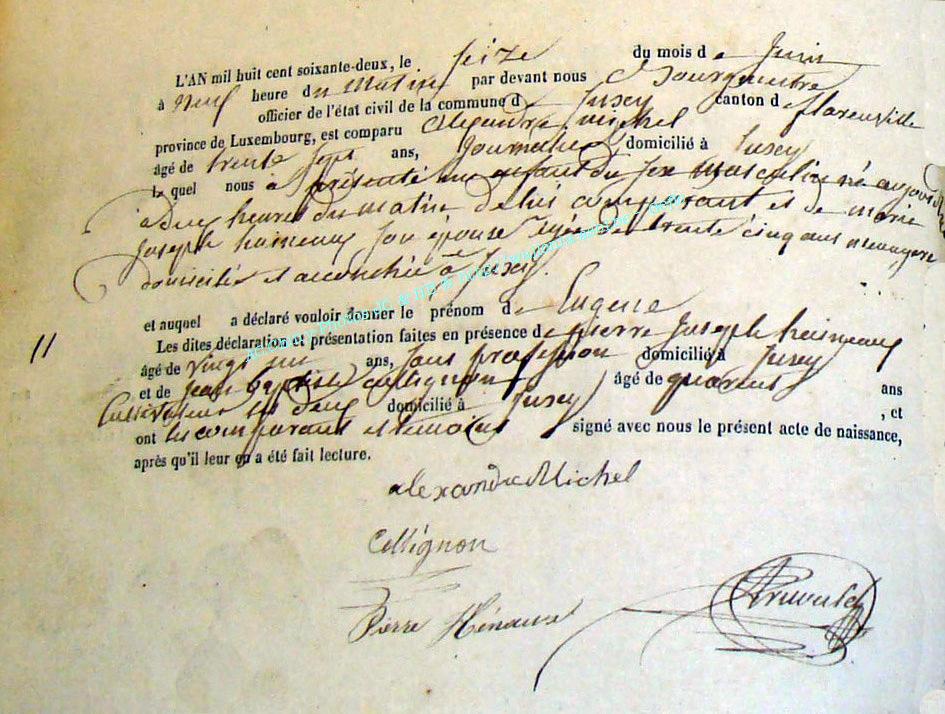 L'AN mil huit cent soixante-deux, le seize du mois de Juin
à neuf heure du matin par devant nous Bourgmestre
officier de l'état civil de la commune de Jusey canton de florenville
province de Luxembourg, est comparu alexandre michel
âgé de trente sept ans, Journalier domicilié à Jusey
le quel nous a présenté un enfant du sex masculin né aujourd
à deux heures du matin de lui comparant et de marie
Joseph haineaux son épouse agée de trente cinq ans menagere
domicilié et accouchée à Jusey.
et auquel a déclaré vouloir donner le prénom de Eugene
11
Les dites déclaration et présentation faites en présence de pierre Joseph haineaux
âgé de vingt ans, sans profession domicilié à Jusey
et de jean baptiste collignon âgé de quarente ans
Cultivateur les deux domicilié à Jusey, et
ont les comparant et temoins signé avec nous le présent acte de naissance,
après qu'il leur en a été fait lecture.
alexandre Michel
Collignon
Pierre Hénaux